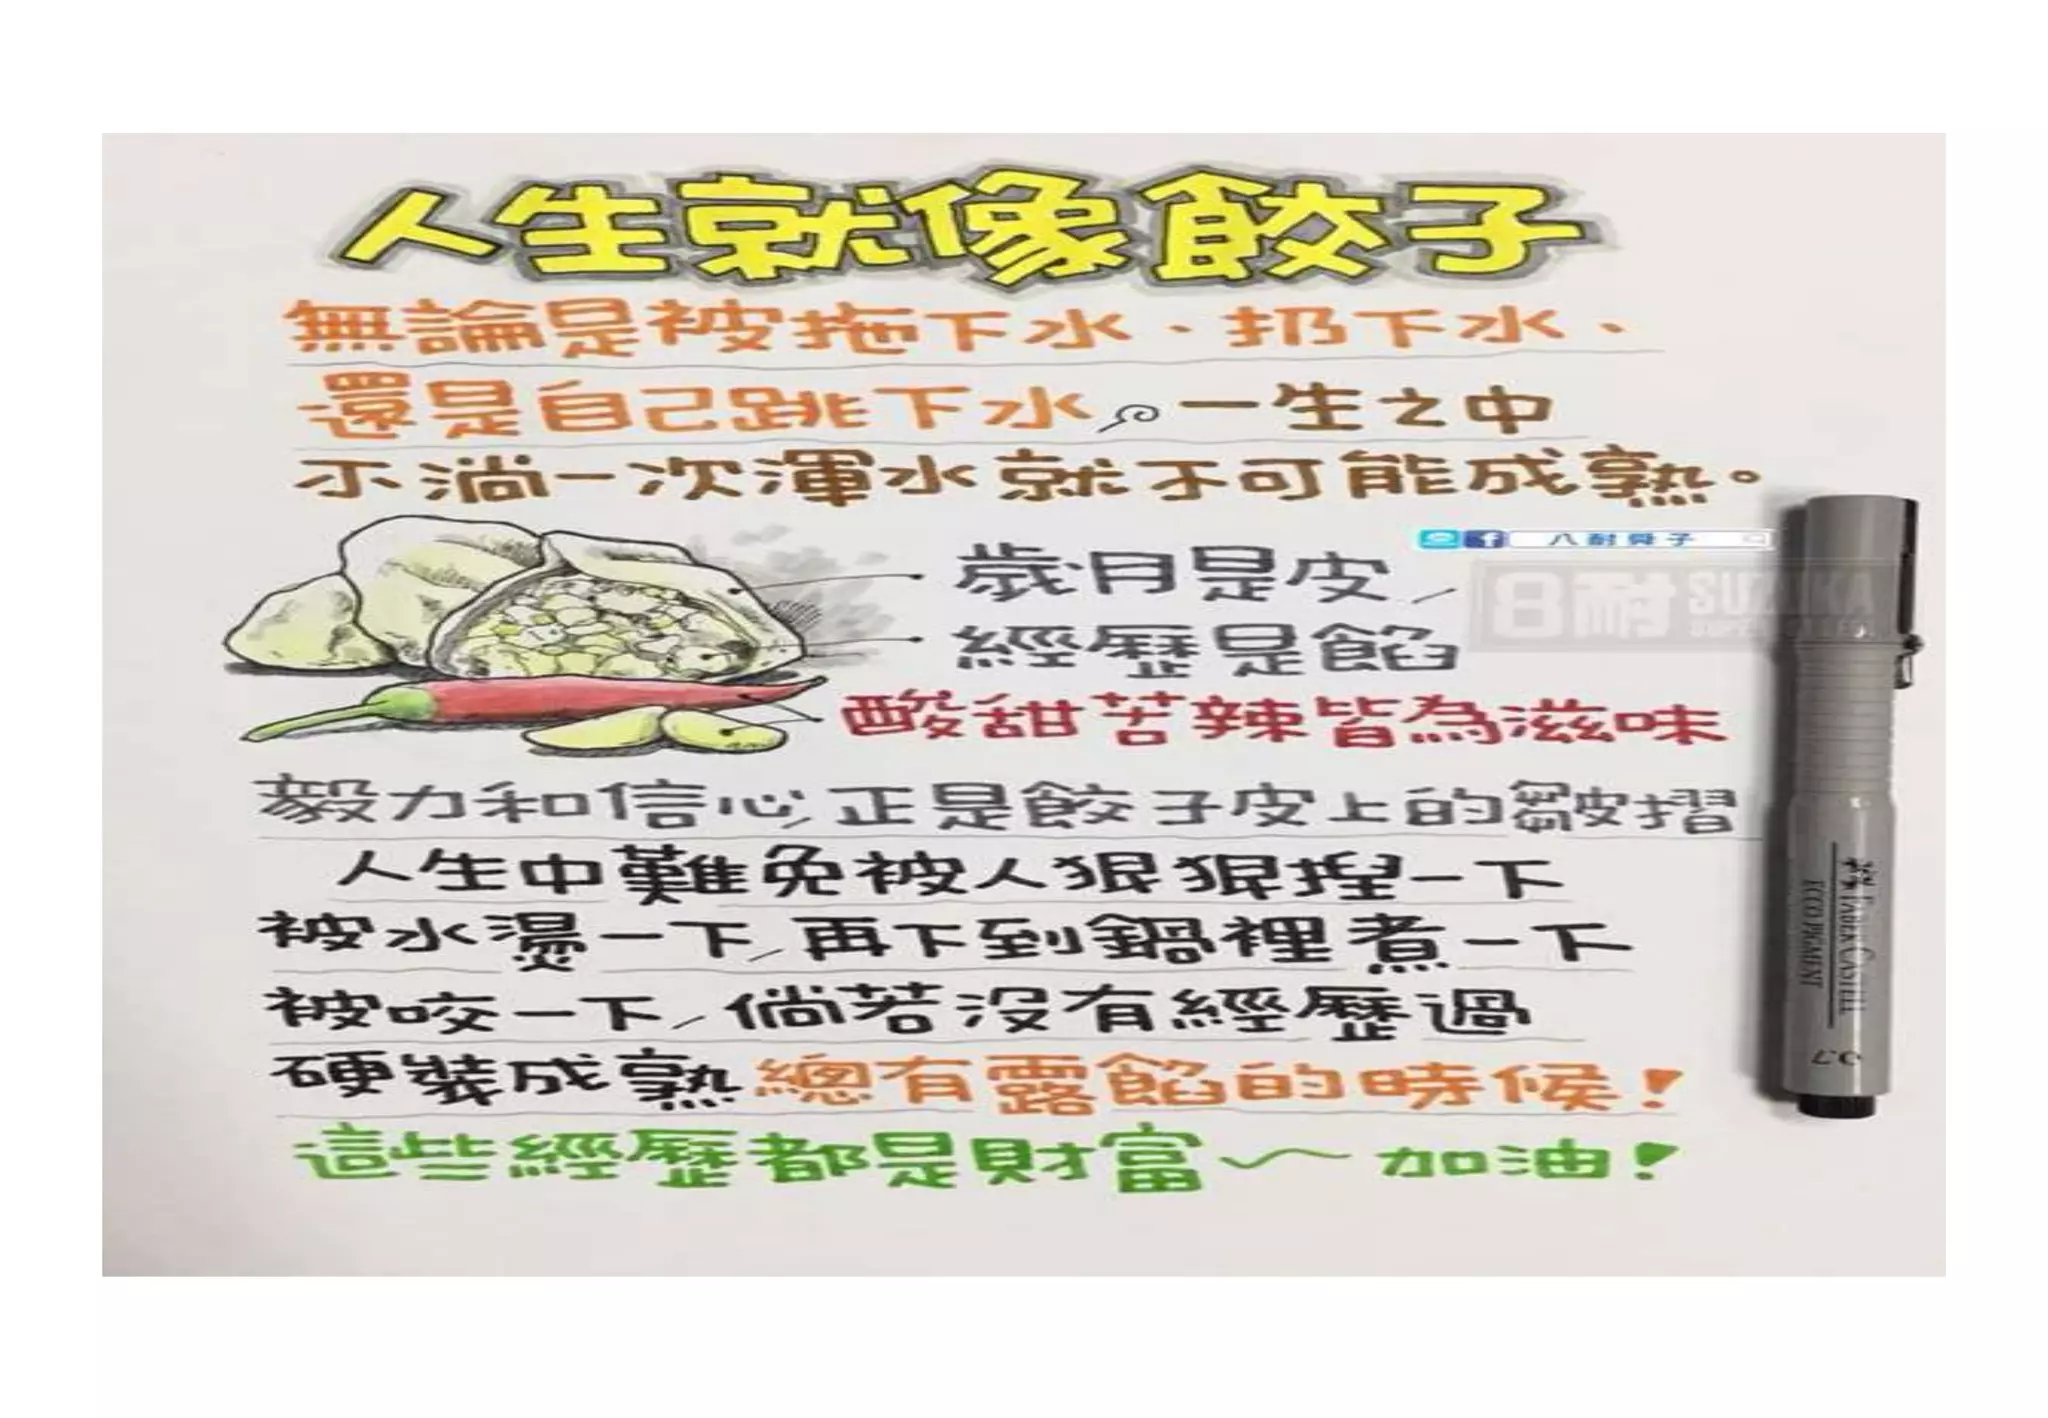 人生就像餃子
無論是被拖下水、扔下水、
還是自己跳下水，一生之中
不淌一次渾水就不可能成熟。
八耐舜子
歲月是皮，
8耐 SUZUKA
經歷是餡
酸甜苦辣皆為滋味
毅力和信心，正是餃子皮上的皺摺
人生中難免被人狠狠捏一下
被水燙一下，再下到鍋裡煮一下
被咬一下，倘若沒有經歷過
硬裝成熟總有露餡的時候！
這些經歷都是財富～加油！
FABER CASTELL
ECCO PIGMENT
0.7